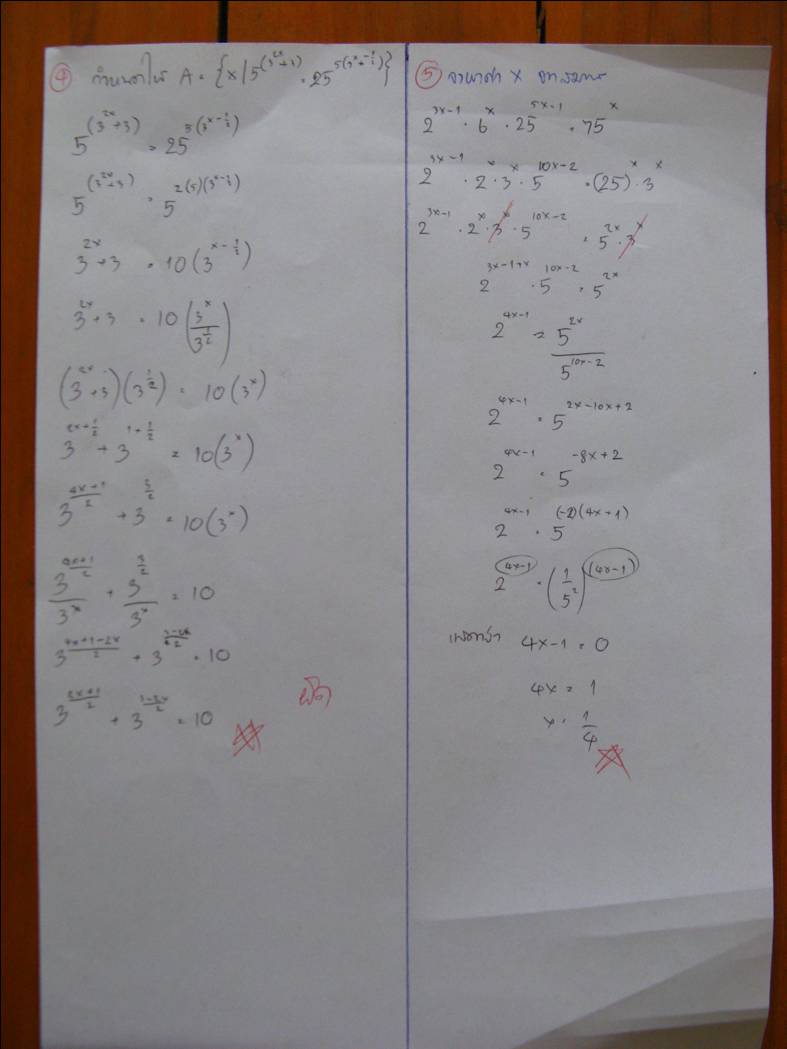 ④ กำหนดให้ A = {x | 5^(3^(2x)+3) = 25^(5(3^(x-1/2)))}
5^(3^(2x)+3) = 25^(5(3^(x-1/2)))
5^(3^(2x)+3) = 5^(2(5)(3^(x-1/2)))
3^(2x)+3 = 10(3^(x-1/2))
3^(2x)+3 = 10(3^x/3^(1/2))
(3^(2x)+3)(3^(1/2)) = 10(3^x)
3^(2x+1/2) + 3^(1+1/2) = 10(3^x)
3^((4x+1)/2) + 3^(3/2) = 10(3^x)
3^((4x+1)/2)/3^x + 3^(3/2)/3^x = 10
3^((4x+1-2x)/2) + 3^((3-2x)/2) = 10
3^((2x+1)/2) + 3^((3-2x)/2) = 10
⑤ จงหาค่า x จากสมการ
2^(3x-1) · 6^x · 25^(5x-1) = 75^x
2^(3x-1) · 2^x · 3^x · 5^(10x-2) = (25)^x · 3^x
2^(3x-1) · 2^x · 3^x · 5^(10x-2) = 5^(2x) · 3^x
2^(3x-1+x) · 5^(10x-2) = 5^(2x)
2^(4x-1) = 5^(2x)/5^(10x-2)
2^(4x-1) = 5^(2x-10x+2)
2^(4x-1) = 5^(-8x+2)
2^(4x-1) = 5^((-2)(4x-1))
2^(4x-1) = (1/5^2)^(4x-1)
4x-1 = 0
4x = 1
x = 1/4